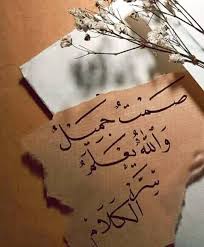 صَمْتٌ جَمِيْلٌ
وَاللّٰهُ يَعْلَمُ
سِرَّ
الْكَلَامْ